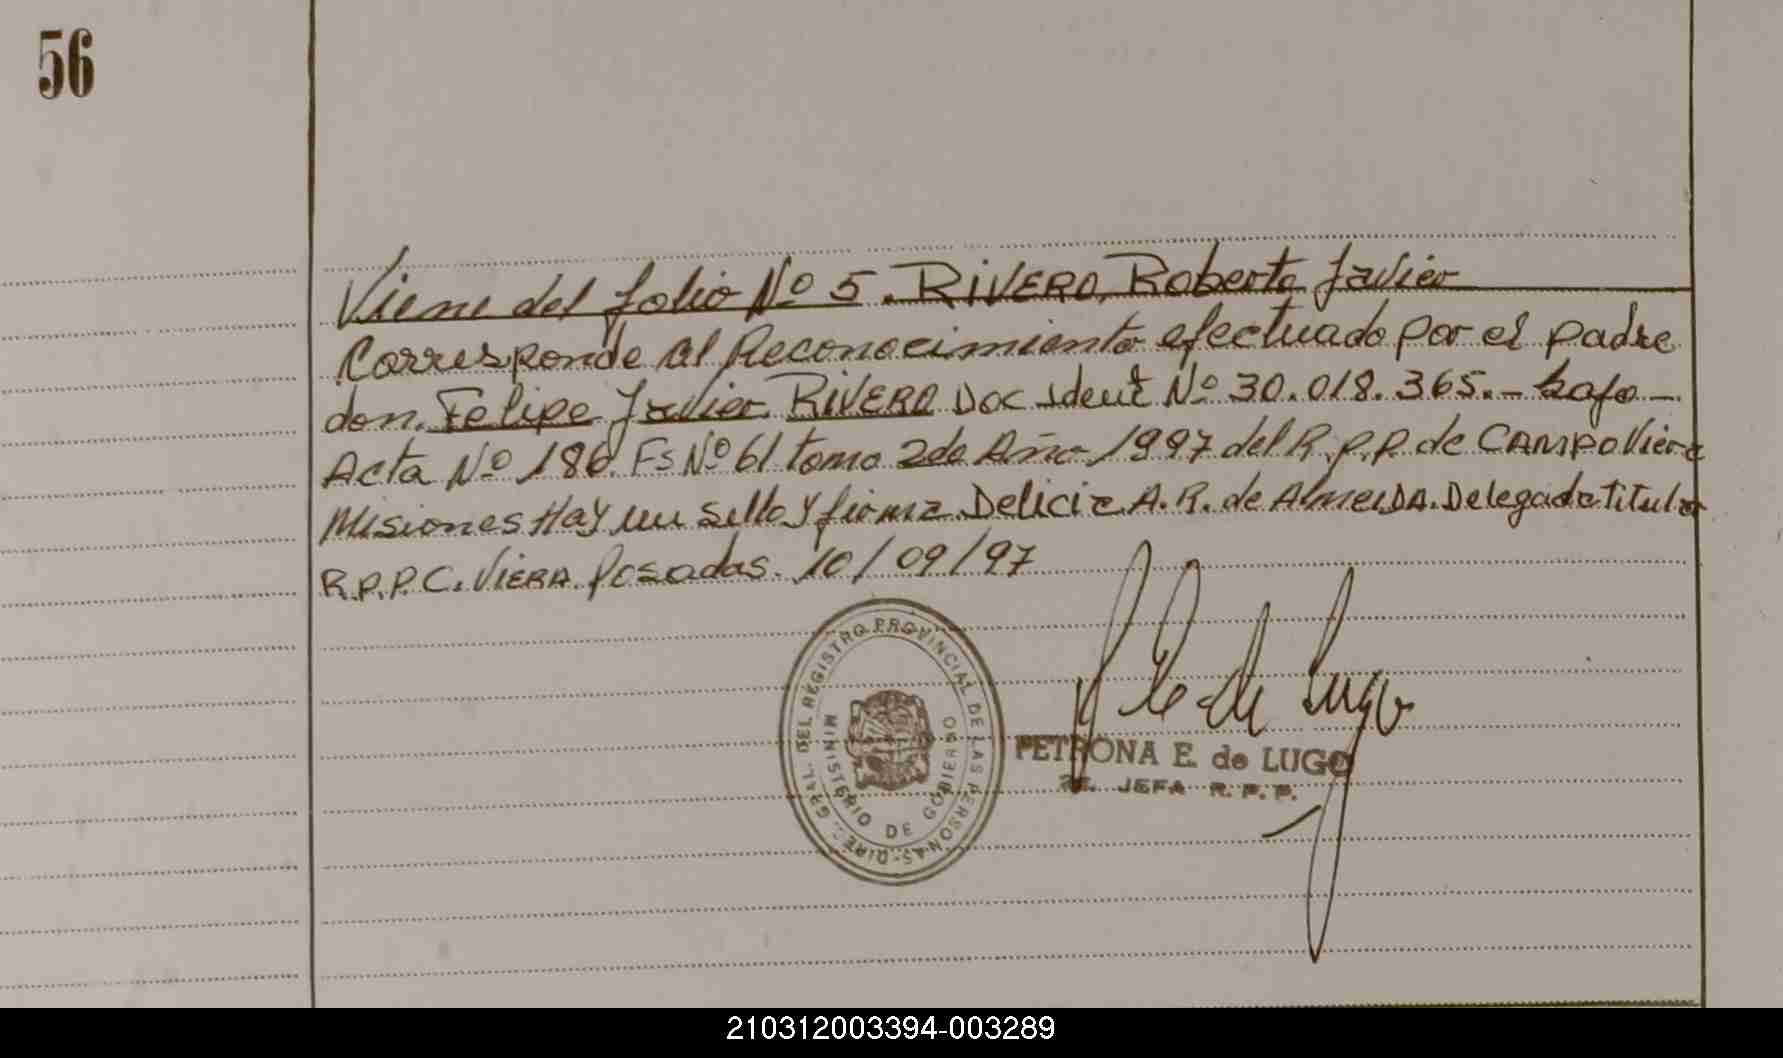 56
Viene del folio Nº 5. RIVERO, Roberto Javier
Corresponde al Reconocimiento efectuado por el padre
don. Felipe Javier RIVERO Doc Ident Nº 30.018.365.- bajo -
Acta Nº 186. Fs Nº 61 tomo 2do Año 1997 del R.P.P. de CAMPO Viera
Misiones Hay un sello y firma Delicia A. R. de AlmeiDA. Delegada titular
R.P.P. C. VIERA Posadas. 10/09/97
DIREC. GRAL. DEL REGISTRO PROVINCIAL DE LAS PERSONAS
MINISTERIO DE GOBIERNO
PETRONA E. de LUGO
JEFA R. P. P.
210312003394-003289